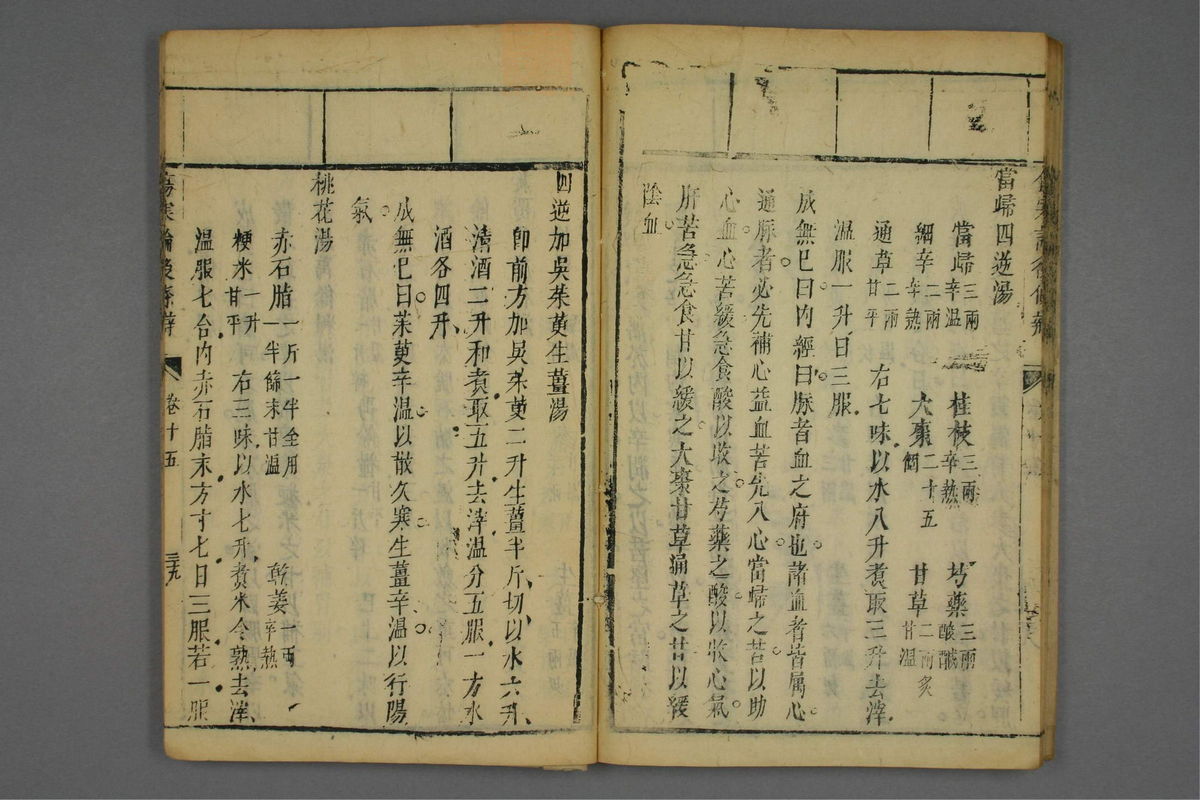 當歸四逆湯
當歸三兩辛溫 桂枝三兩辛熱 芍藥三兩酸鹹
細辛二兩辛熱 大棗二十五個 甘草二兩炙甘溫
通草二兩甘平 右七味以水八升煮取三升去滓
溫服一升日三服
成無已曰內經曰脉者血之府也諸血者皆属心
通脉者必先補心益血苦先入心當歸之苦以助
心血心苦緩急食酸以收之芍藥之酸以收心氣
肝苦急急食甘以緩之大棗甘草通草之甘以緩
陰血
四逆加吳茱萸生薑湯
卽前方加吳茱萸二升生薑半斤切以水六升
清酒二升和煮取五升去滓溫分五服一方水
酒各四升
成無已曰茱萸辛溫以散久寒生薑辛溫以行陽
氣
桃花湯
赤石脂一斤一半全用一半篩末甘溫 乾姜一兩辛熱
粳米一升甘平 右三味以水七升煮米令熟去滓
溫服七合內赤石脂末方寸七日三服若一服
傷寒論後條辨 卷十五 三九